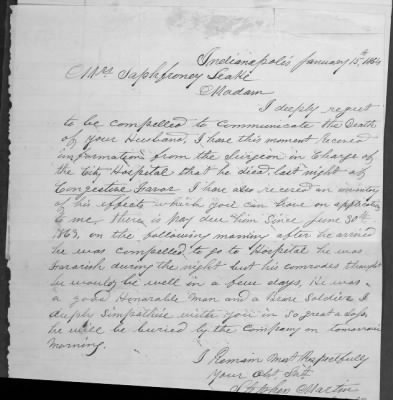 Indianapolis January 15th 1864
Mrs Saphfroney Leake
Madam
I deeply regret
to be compelled to communicate the Death
of your Husband, I have this moment received
information from the Surgeon in Charge of
the City Hospital that he died last night of
Congestive I have also received an inventory
of his effects which you can have on application
to me, there is pay due him Since June 30th
1863, on the following morning after he arrived
he was compelled to go to Hospital he was
during the night but his comrades thought
he would be well in a few days, He was
a good Honorable Man and a Brave Soldier I
deeply Simpathise with you in So great a Loss,
he will be buried by the Company on tomorrow
morning.
I Remain Most Respectfully
Your Obt Svt
Stephen Martin